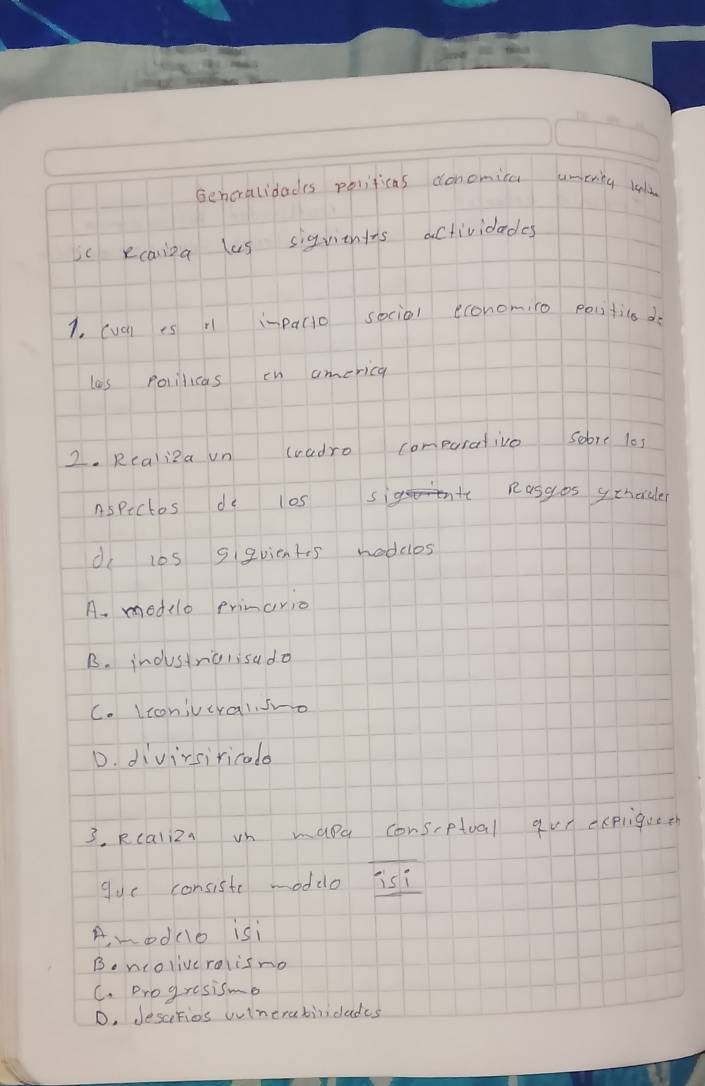 Generalidades politicas economica america
se Realiza las siguientes actividades
1. Cual es el impacto social economico politico de
las politicas en america
2. Realiza un cuadro comparativo sobre los
Aspectos de los Rasgos generales
de los siguientes modelos
A. modelo primario
B. industrialisado
C.
D. divirsiricado
3. Realiza un mapa conseptual que expliqueen
que consiste modelo isi
A. modelo isi
B. neoliverolismo
C. progresismo
D. desafios vulnerabilidades